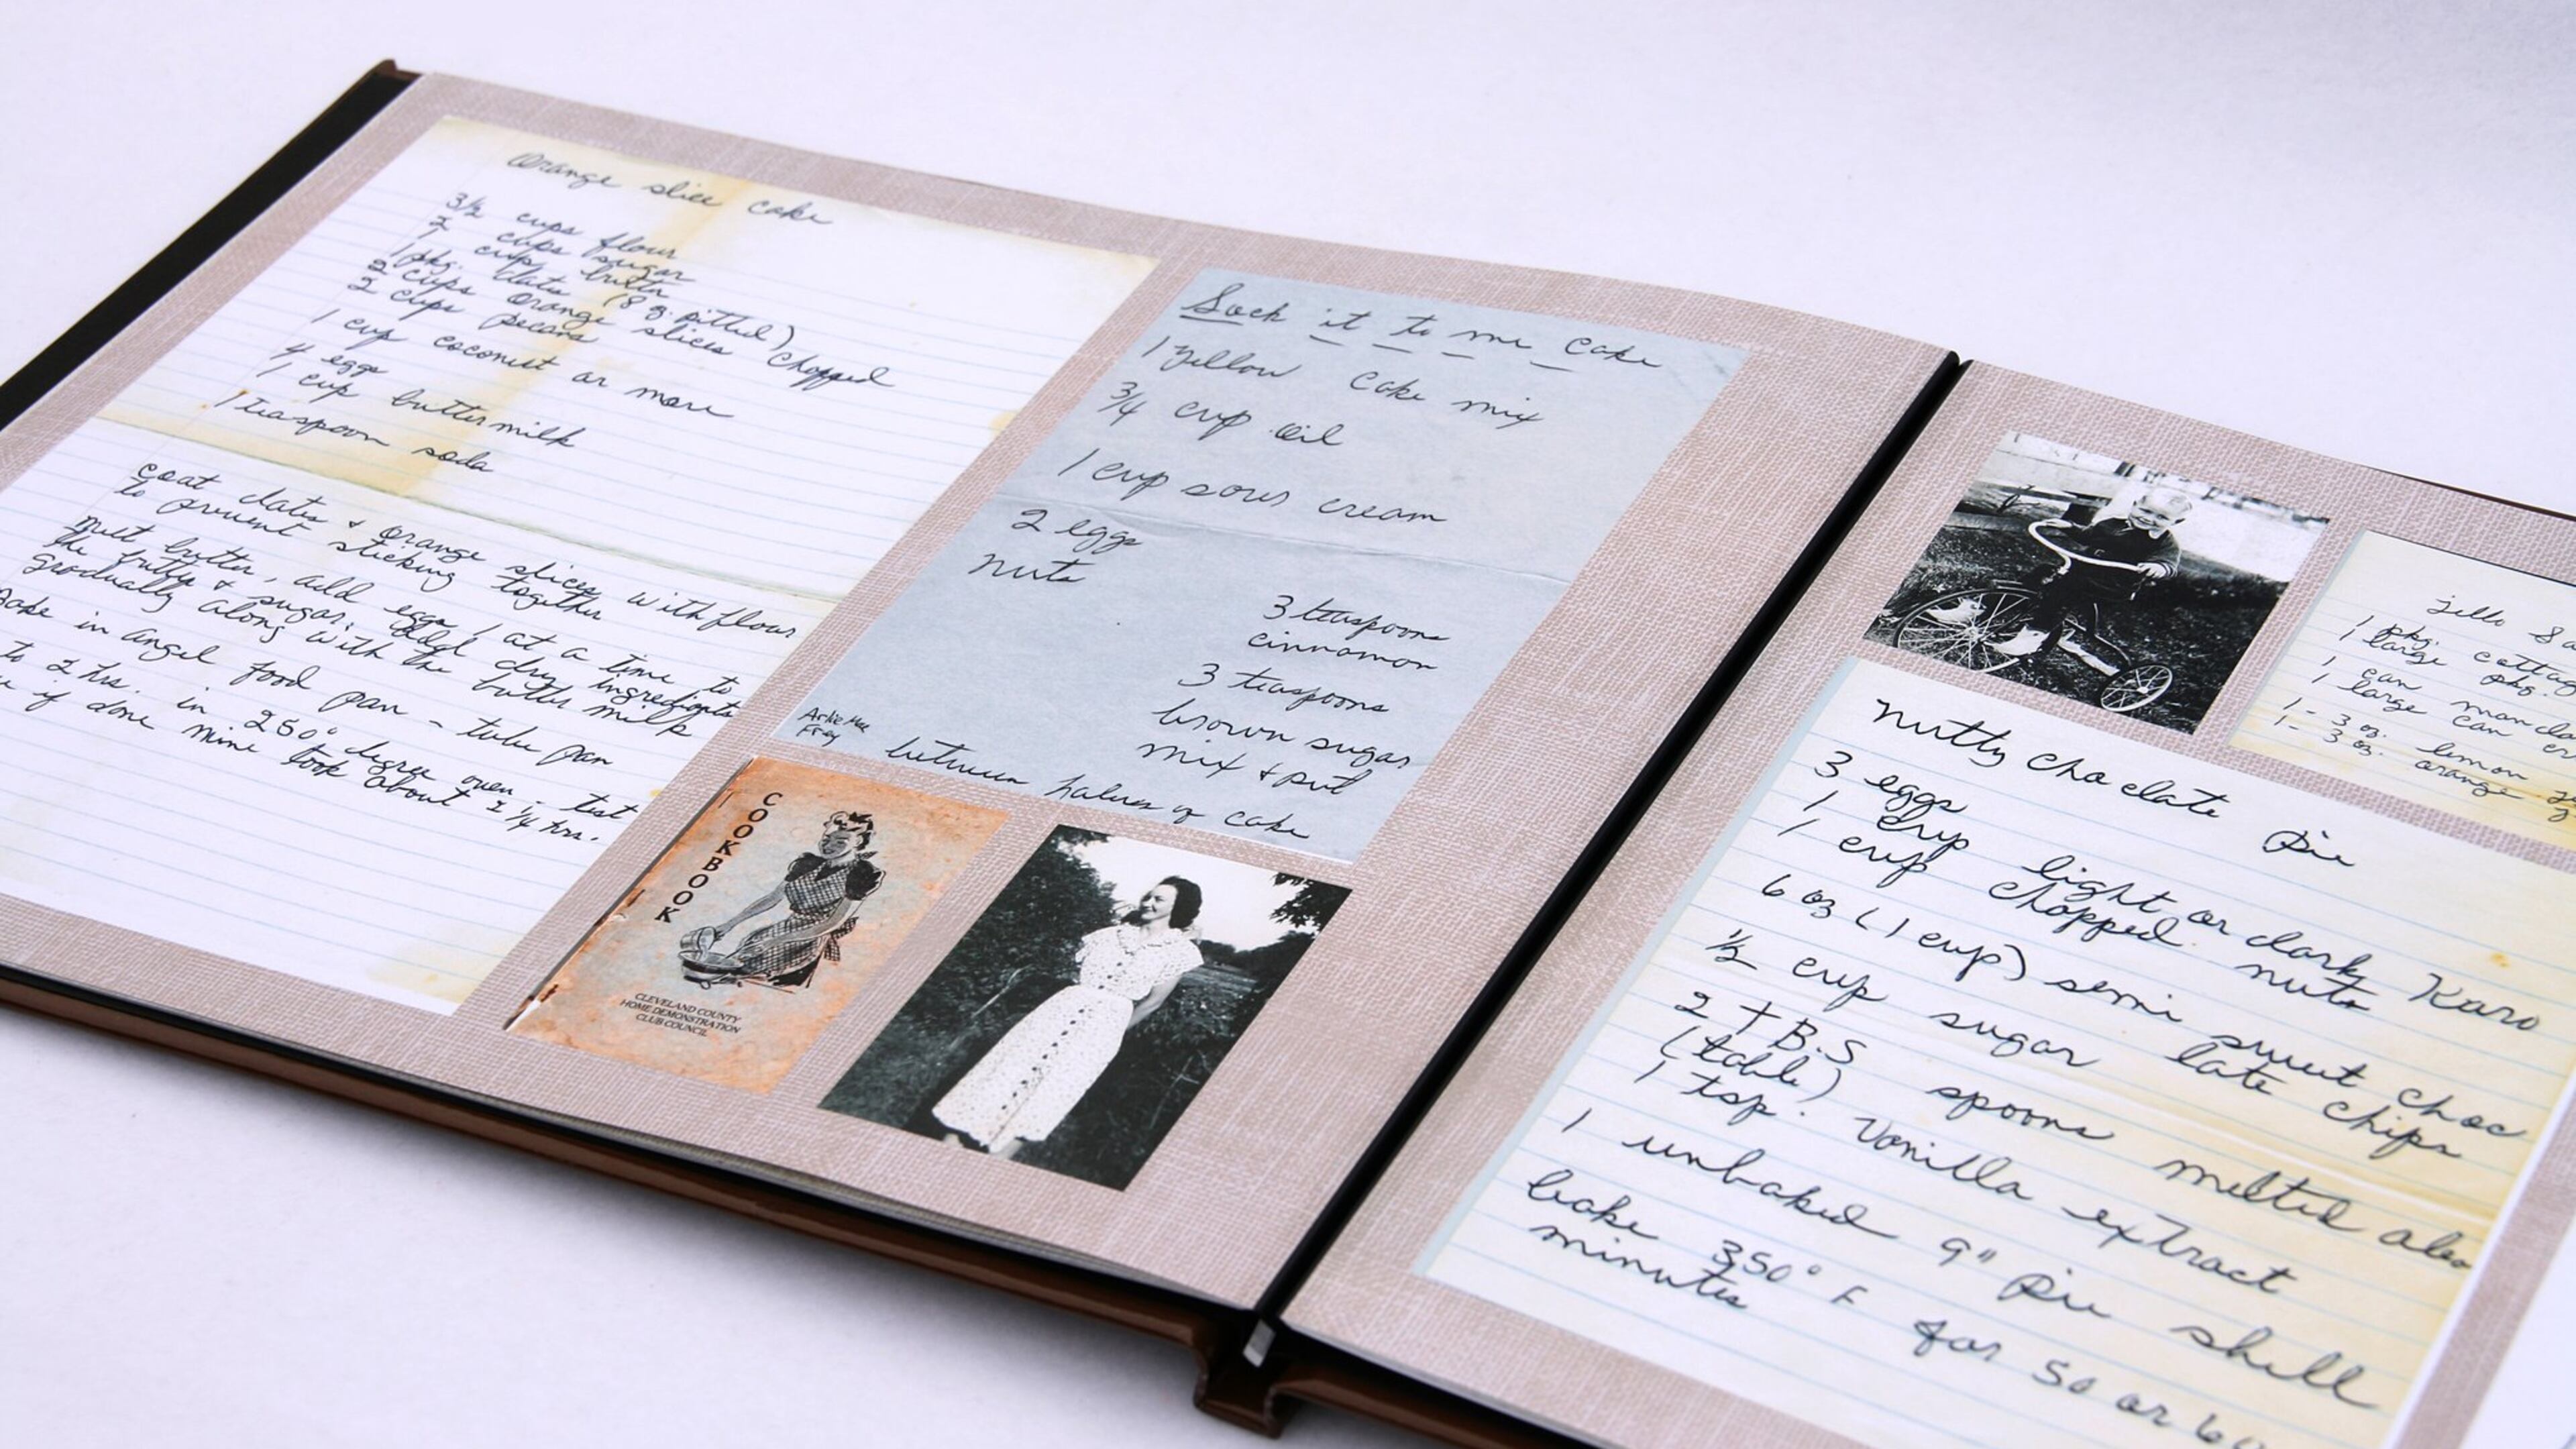 Orange slice cake
3½ cups flour
2 cups sugar
1 cup butter
1 pkg. dates (8 oz. pitted)
2 cups orange slices chopped
2 cups pecans
1 cup coconut or more
4 eggs
1 cup buttermilk
1 teaspoon soda
coat dates & orange slices with flour
to prevent sticking together
melt butter, add eggs 1 at a time to
the butter & sugar, add dry ingredients
gradually along with the butter milk
Bake in angel food pan - tube pan
to 2 hrs. in 250° degree oven - test
if done mine took about 2 ¼ hrs.
Sock it to me Cake
1 yellow cake mix
3/4 cup oil
1 cup sour cream
2 eggs
nuts
3 teaspoons
cinnamon
3 teaspoons
brown sugar
mix & put
between halves of cake
Arlie Mae
Frey
COOKBOOK
CLEVELAND COUNTY
HOME DEMONSTRATION
CLUB COUNCIL
Jello
1 pkg. cottag
1 large pkg.
1 can manda
1 large can
1 - 3 oz. lemon
1 - 3 oz. orange
nutty choclate pie
3 eggs
1 cup light or dark Karo
1 cup chopped nuts
6 oz (1 cup) semi sweet choc
late chips
½ cup sugar
2 T B.S spoons melted oleo
(table)
1 tsp. Vanilla extract
1 unbaked 9" pie shell
bake 350° F for 50 or 60
minutes